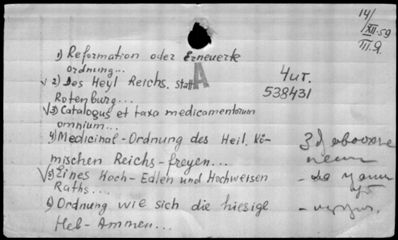 14/
XII-59
III.9.
1) Reformation oder Erneuerte
ordnung...
v 2) Des Heyl Reichs. statt
Rotenburg...
A
Чит.
538431
v3) Catalogus et taxa medicamentorum
omnium...
4) Medicinal-Ordnung des Heil. Rö-
mischen Reichs-freyen...
v5) Eines Hoch-Edlen und Hochweisen
Raths....
6) Ordnung wie sich die hiesige
Heb-Ammen...